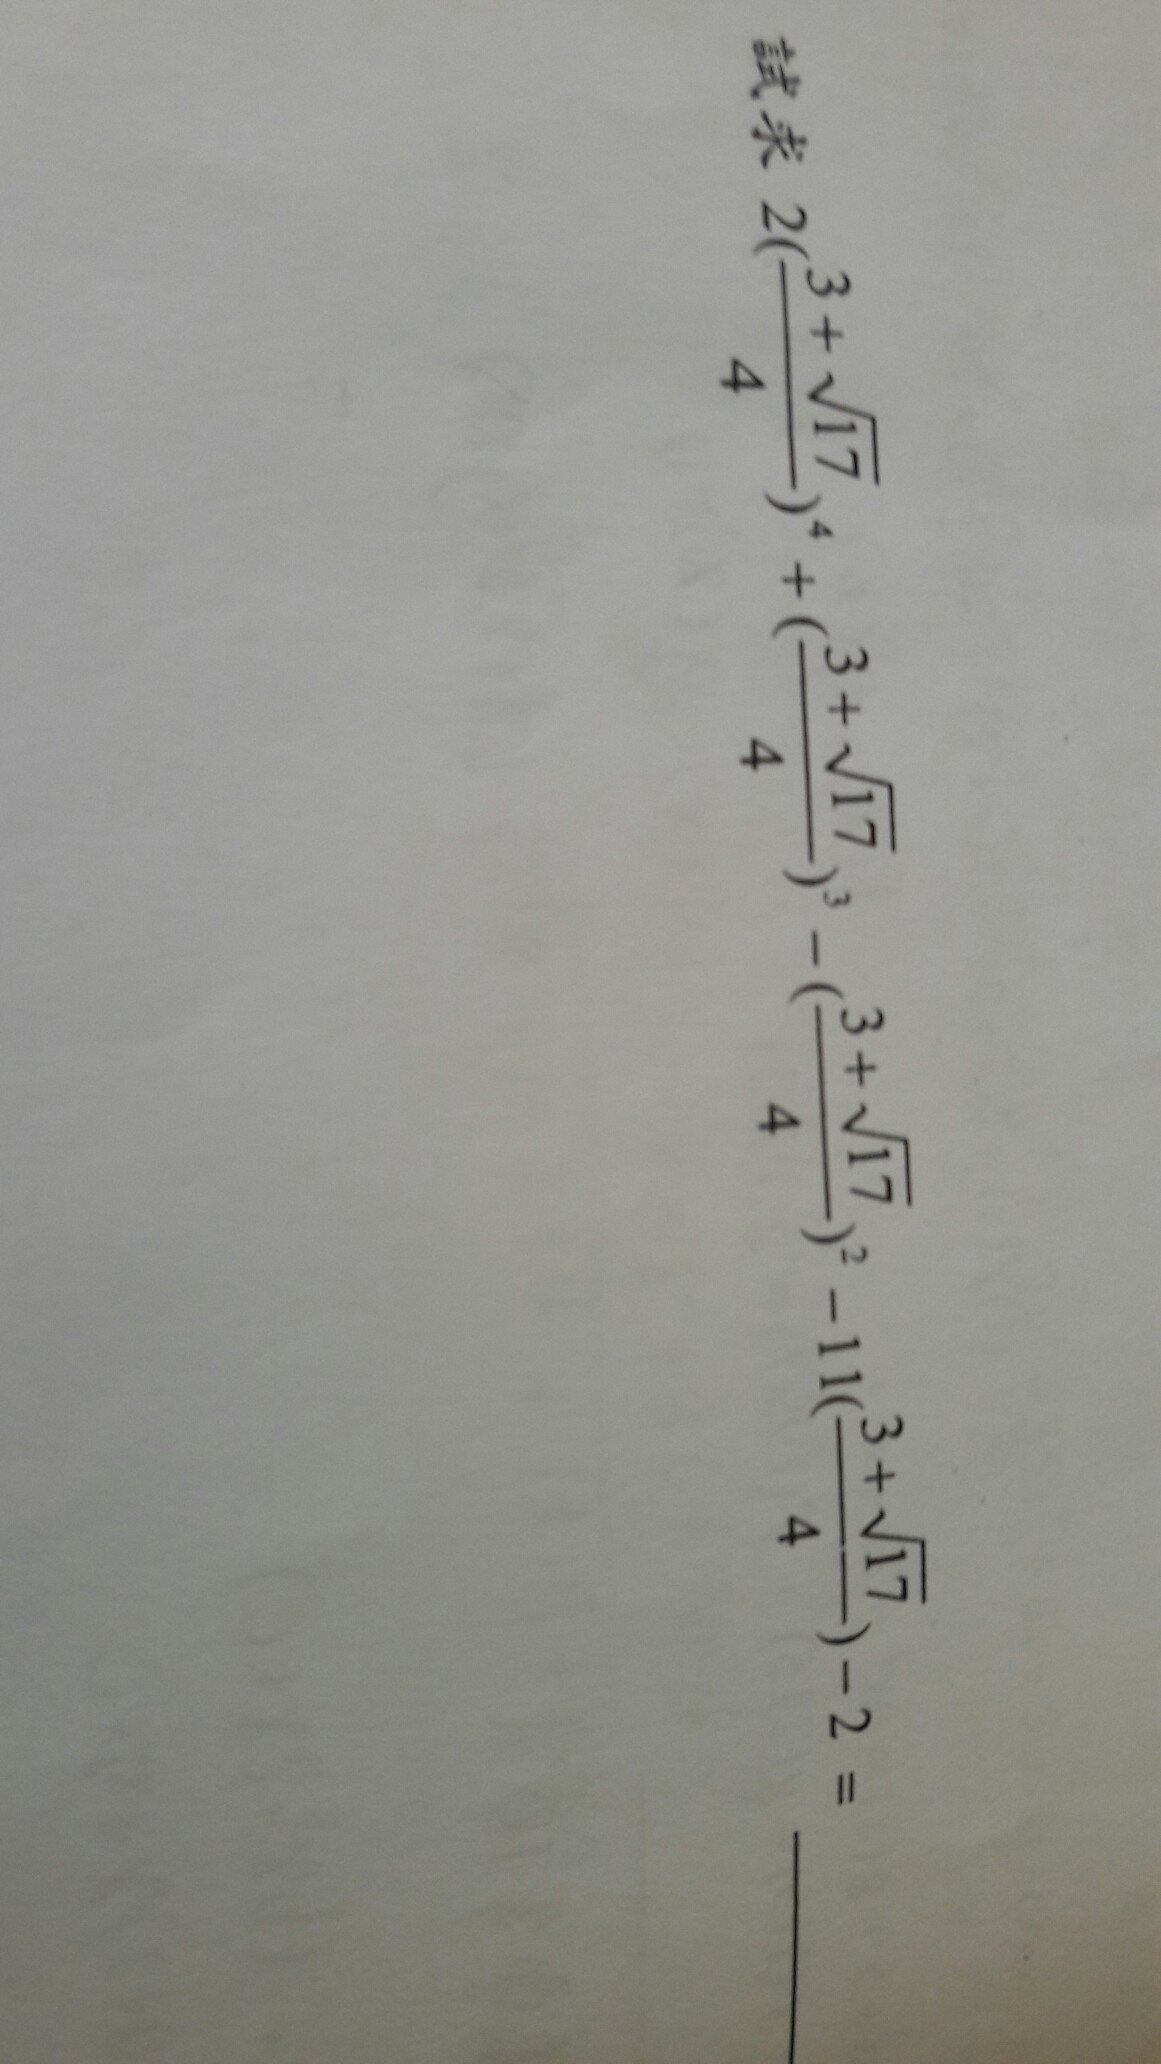 試求 2(\frac{3+\sqrt{17}}{4})^4 + (\frac{3+\sqrt{17}}{4})^3 - (\frac{3+\sqrt{17}}{4})^2 - 11(\frac{3+\sqrt{17}}{4}) - 2 = ____